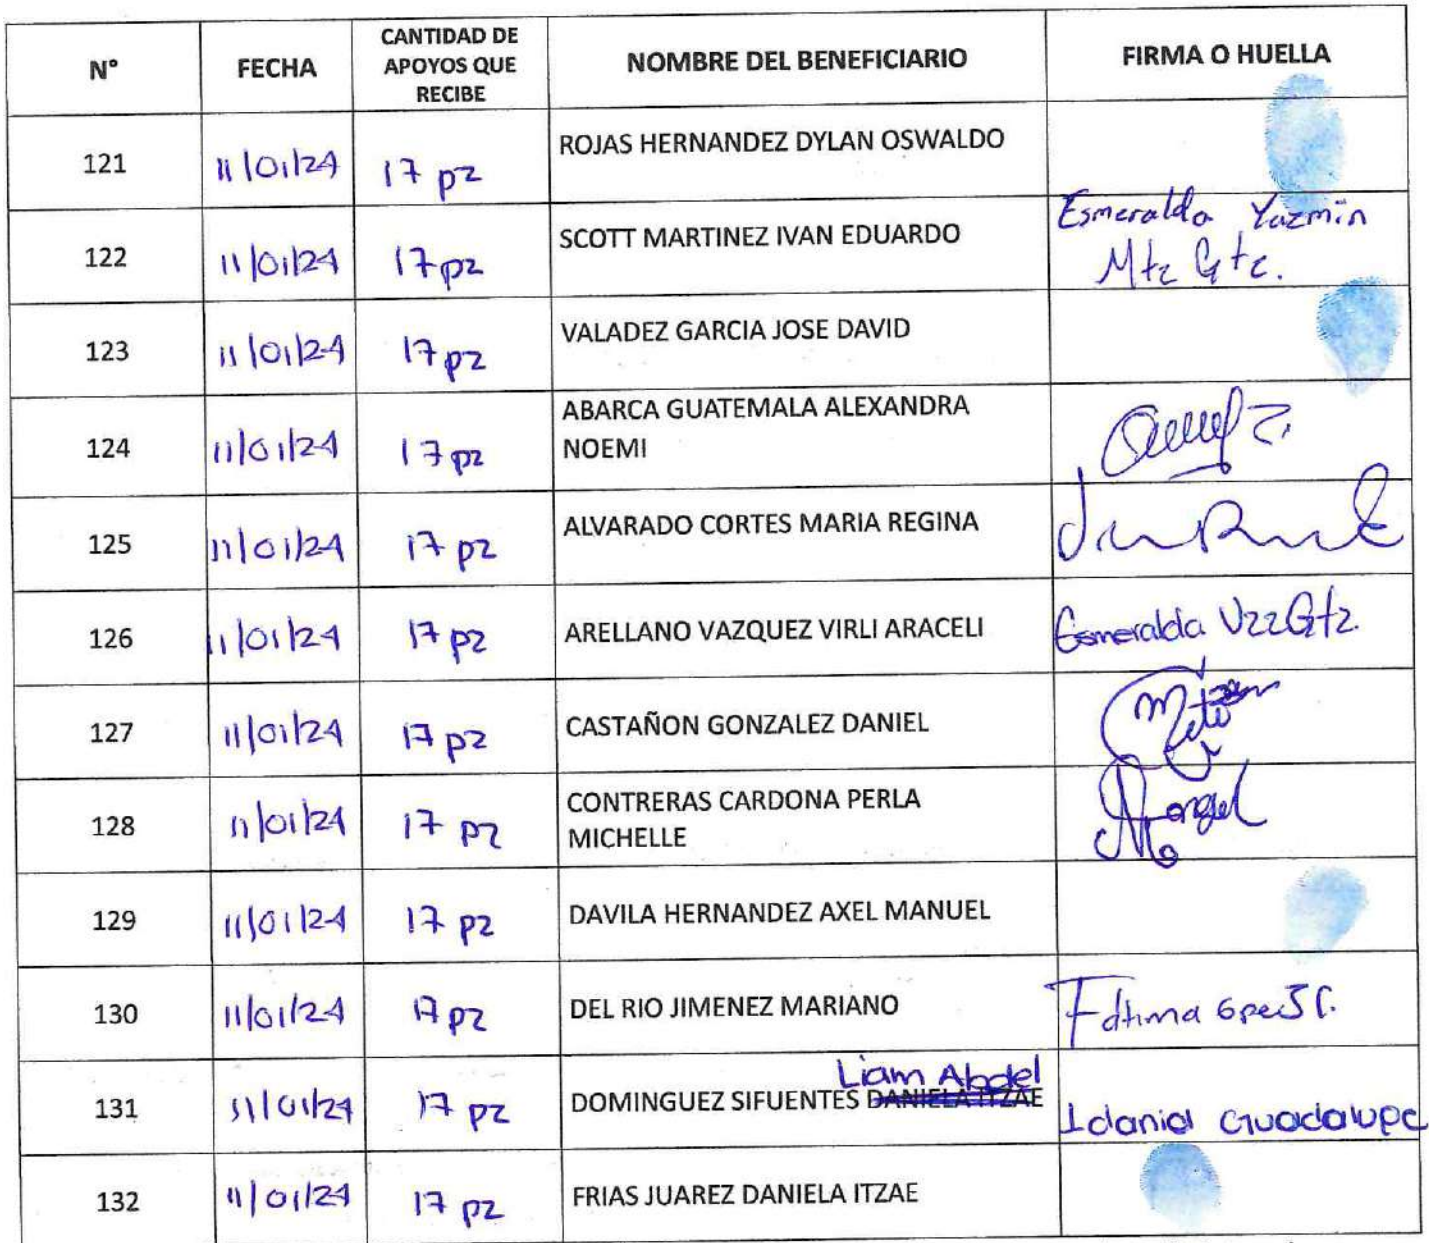 N° FECHA CANTIDAD DE APOYOS QUE RECIBE NOMBRE DEL BENEFICIARIO FIRMA O HUELLA
121 11/01/24 17 pz ROJAS HERNANDEZ DYLAN OSWALDO
122 11/01/24 17 pz SCOTT MARTINEZ IVAN EDUARDO Esmeralda Yazmin
Mtz Gtz.
123 11/01/24 17 pz VALADEZ GARCIA JOSE DAVID
124 11/01/24 17 pz ABARCA GUATEMALA ALEXANDRA
NOEMI
125 11/01/24 17 pz ALVARADO CORTES MARIA REGINA
126 11/01/24 17 pz ARELLANO VAZQUEZ VIRLI ARACELI Esmeralda Vzz Gtz.
127 11/01/24 17 pz CASTAÑON GONZALEZ DANIEL
128 11/01/24 17 pz CONTRERAS CARDONA PERLA
MICHELLE
129 11/01/24 17 pz DAVILA HERNANDEZ AXEL MANUEL
130 11/01/24 17 pz DEL RIO JIMENEZ MARIANO Fatima
Liam Abdel
131 11/01/24 17 pz DOMINGUEZ SIFUENTES DANIELA ITZAE Idania Guadalupe
132 11/01/24 17 pz FRIAS JUAREZ DANIELA ITZAE